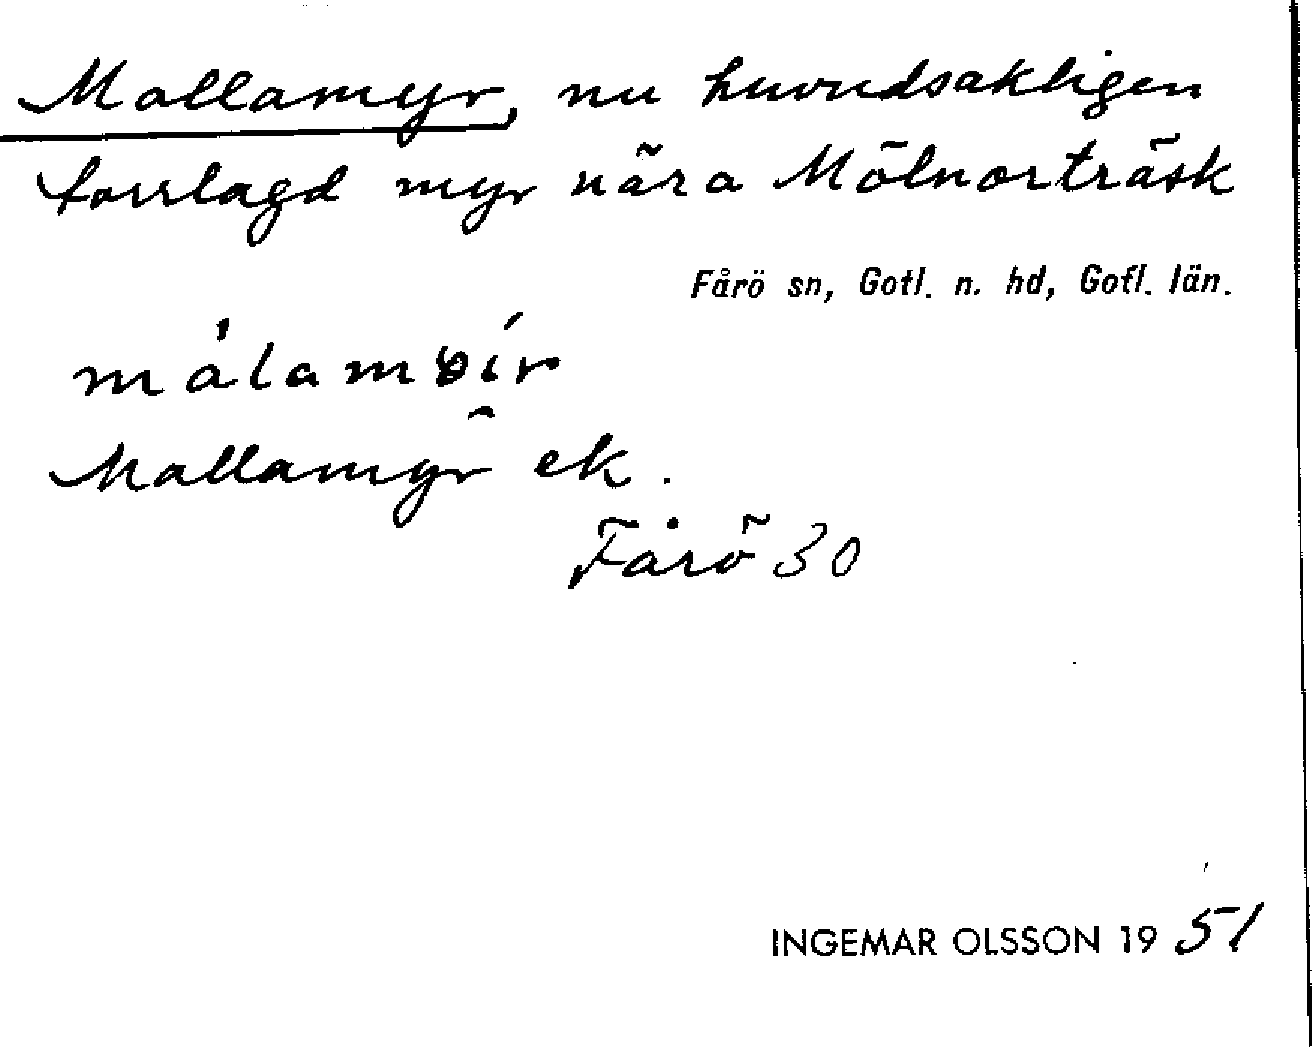 Mallamyr, nu huvudsakligen
torrlagd myr nära Mölnorträsk
Fårö sn, Gotl. n. hd, Gotl. län.
Mallamyr ek.
Fårö 30
INGEMAR OLSSON 1951